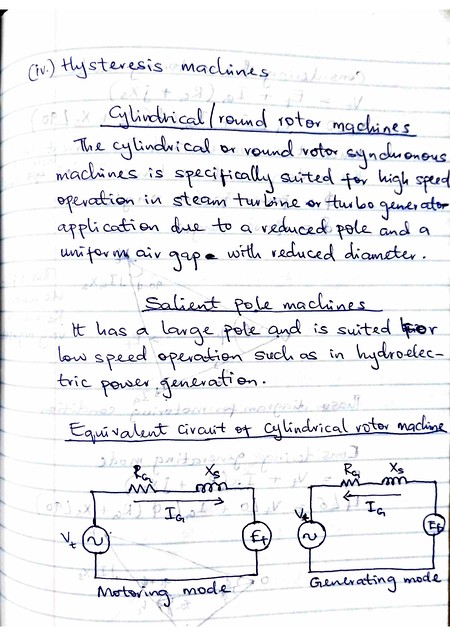 (iv.) Hysteresis machines
Cylindrical/round rotor machines
The cylindrical or round rotor synchronous
machines is specifically suited for high speed
operation in steam turbine or turbo generator
application due to a reduced pole and a
uniform air gap with reduced diameter.
Salient pole machines
It has a large pole and is suited for
low speed operation such as in hydroelec-
tric power generation.
Equivalent circuit of cylindrical rotor machine
Ra Xs Ra Xs
Ia Ia
Vt Ef Vt Ef
Motoring mode Generating mode